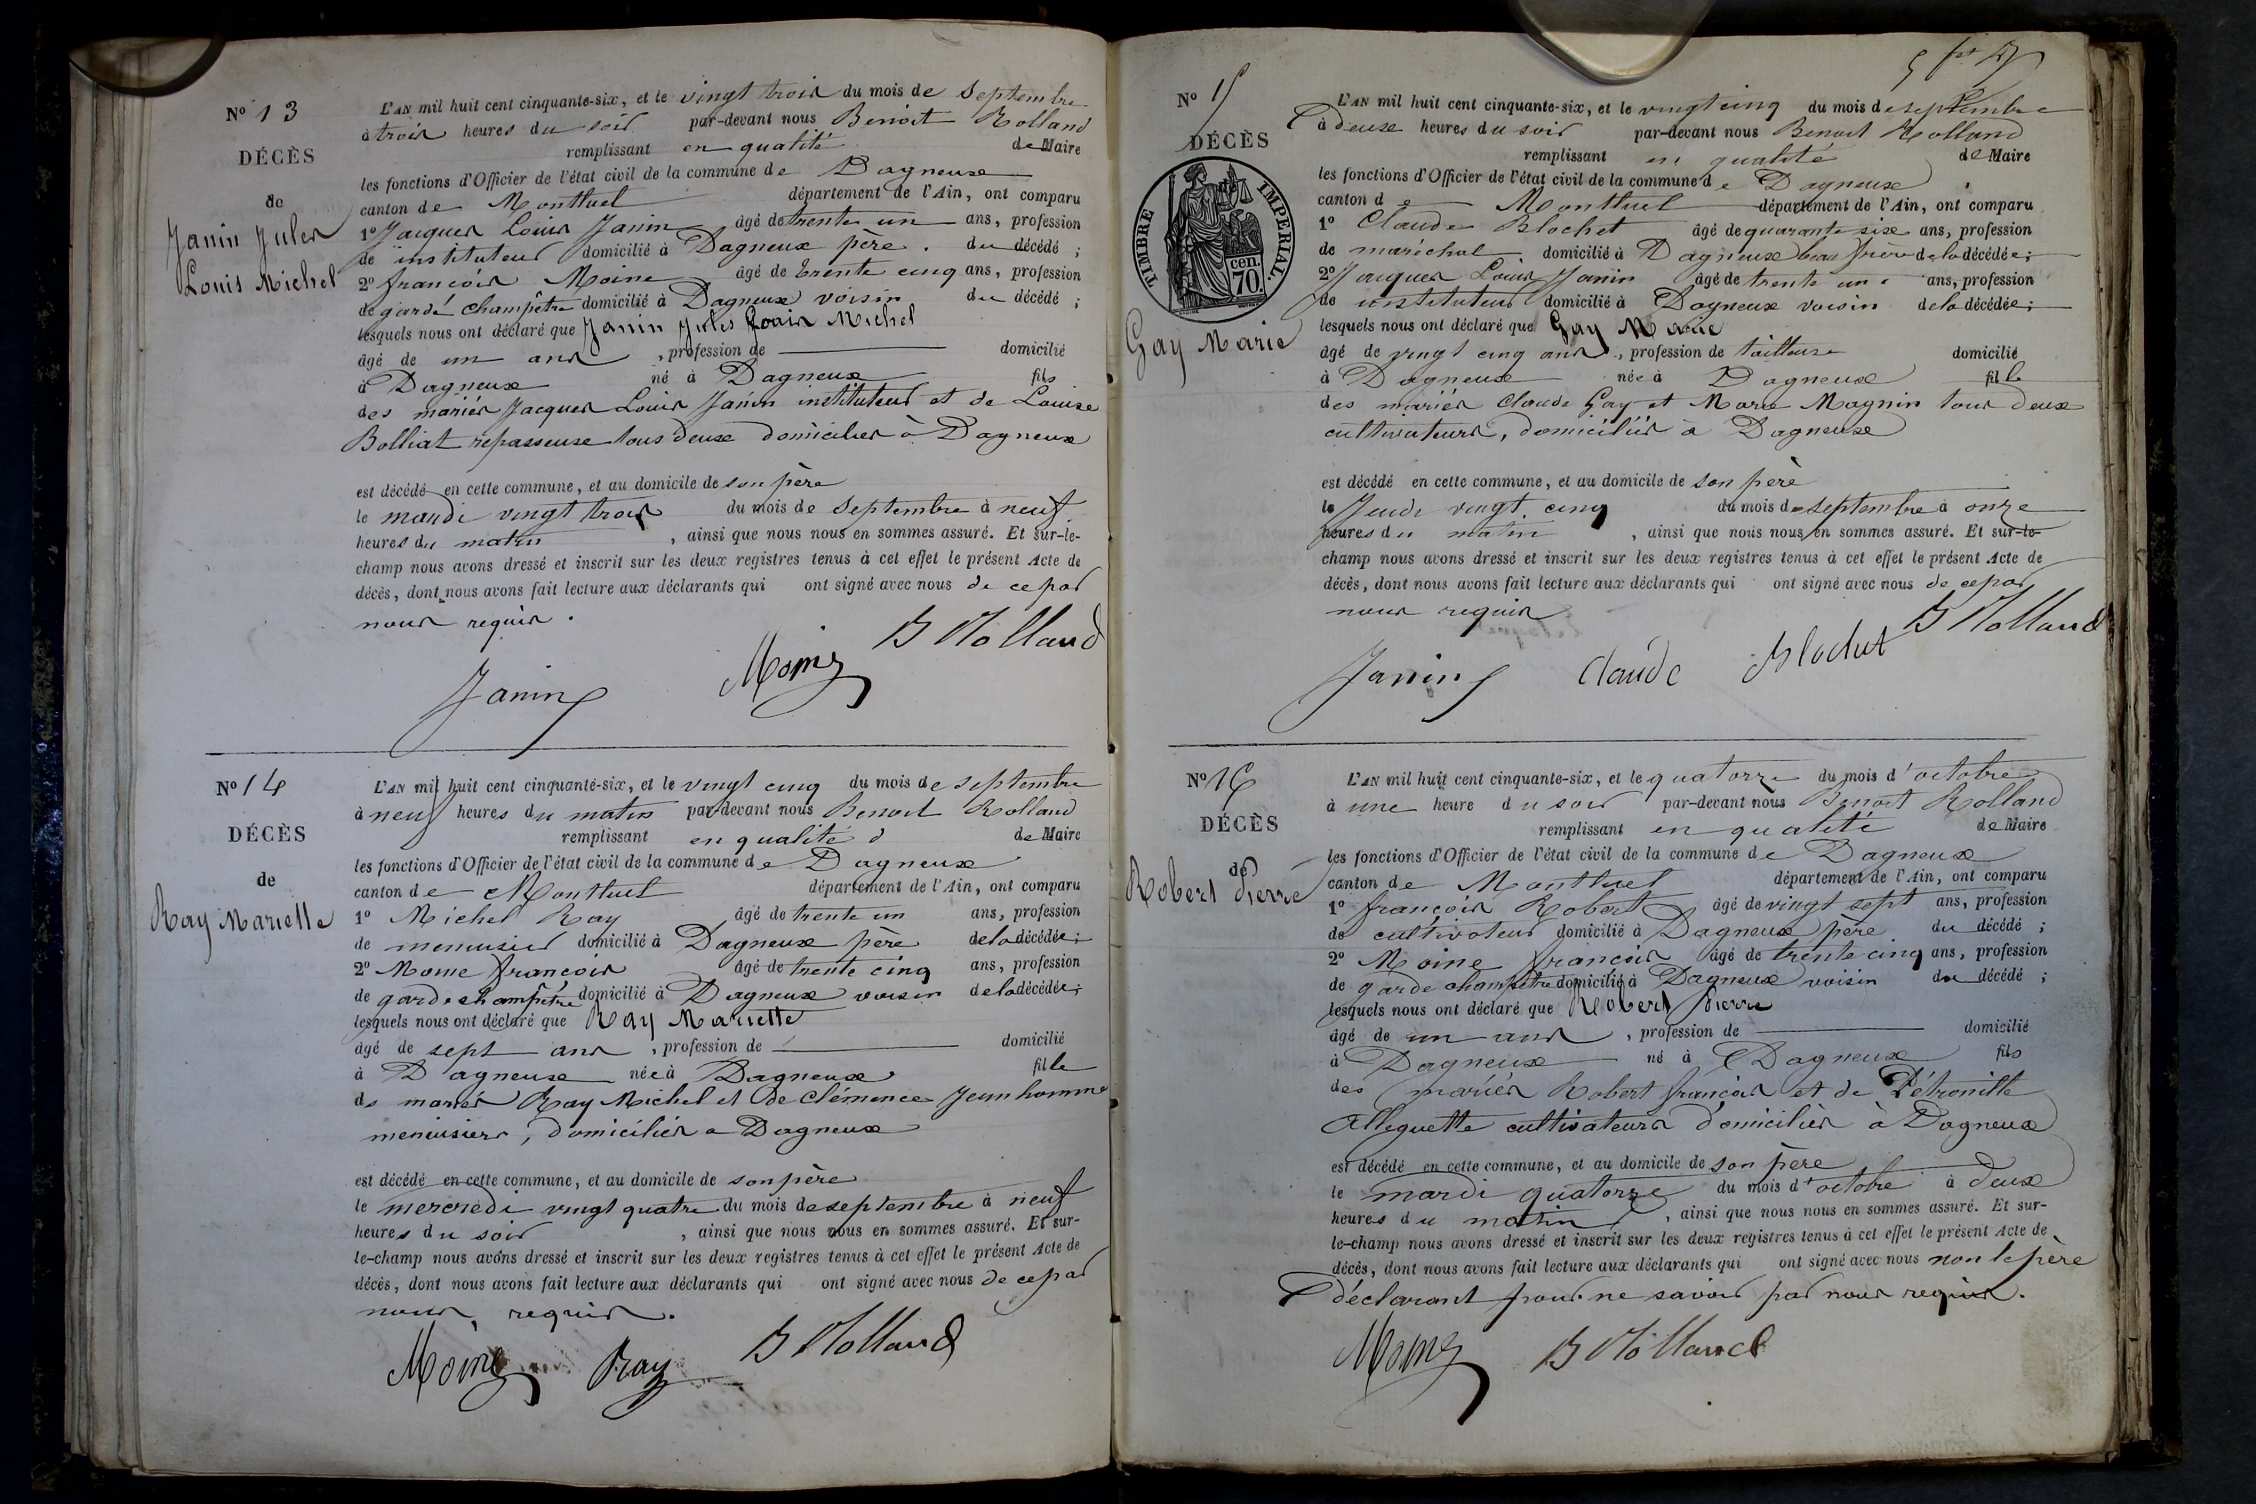 No 13
DÉCÈS
de
Janin Jules
Louis Michel
L'AN mil huit cent cinquante-six, et le vingt trois du mois de Septembre
à trois heures du soir par-devant nous Benoit Rolland
remplissant en qualité de Maire
les fonctions d'Officier de l'état civil de la commune de Dagneux
canton de Montluel département de l'Ain, ont comparu
1o Jacques Louis Janin âgé de trente un ans, profession
de instituteur domicilié à Dagneux père du décédé ;
2o françois Moine âgé de trente cinq ans, profession
de garde champêtre domicilié à Dagneux voisin du décédé ;
lesquels nous ont déclaré que Janin Jules Louis Michel
âgé de un ans , profession de domicilié
à Dagneux né à Dagneux fils
des mariés Jacques Louis Janin instituteur et de Louise
Bolliat repasseuse tous deux domiciliés à Dagneux
est décédé en cette commune, et au domicile de son père
le mardi vingt trois du mois de Septembre à neuf
heures du matin , ainsi que nous nous en sommes assuré. Et sur-le-
champ nous avons dressé et inscrit sur les deux registres tenus à cet effet le présent Acte de
décès, dont nous avons fait lecture aux déclarants qui ont signé avec nous de ce par
nous requis.
B Rolland
Moine
Janin
No 14
DÉCÈS
de
Ray Mariette
L'AN mil huit cent cinquante-six, et le vingt cinq du mois de septembre
à neuf heures du matin par-devant nous Benoit Rolland
remplissant en qualité d de Maire
les fonctions d'Officier de l'état civil de la commune de Dagneux
canton de Montluel département de l'Ain, ont comparu
1o Michel Ray âgé de trente un ans, profession
de menuisier domicilié à Dagneux père de la décédée ;
2o Moine françois âgé de trente cinq ans, profession
de garde champêtre domicilié à Dagneux voisin de la décédée ;
lesquels nous ont déclaré que Ray Mariette
âgé de sept ans , profession de domicilié
à Dagneux née à Dagneux fille
ds mariés Ray Michel et de Clémence Jeunhomme
menuisiers, domiciliés a Dagneux
est décédé en cette commune, et au domicile de son père
le mercredi vingt quatre du mois de septembre à neuf
heures du soir , ainsi que nous nous en sommes assuré. Et sur-
le-champ nous avons dressé et inscrit sur les deux registres tenus à cet effet le présent Acte de
décès, dont nous avons fait lecture aux déclarants qui ont signé avec nous de ce par
nous requis.
Moine Ray B Rolland
No 15
DÉCÈS
TIMBRE IMPERIAL.
70. cen.
Gay Marie
L'AN mil huit cent cinquante-six, et le vingt cinq du mois de septembre
à deux heures du soir par-devant nous Benoit Rolland
remplissant en qualité de Maire
les fonctions d'Officier de l'état civil de la commune de Dagneux
canton de Montluel département de l'Ain, ont comparu
1o Claude Blochet âgé de quarante six ans, profession
de maréchal domicilié à Dagneux beau frère de la décédée ;
2o Jacques Louis Janin âgé de trente un ans, profession
de instituteur domicilié à Dagneux voisin de la décédée ;
lesquels nous ont déclaré que Gay Marie
âgé de vingt cinq ans , profession de tailleuse domicilié
à Dagneux née à Dagneux fille
des mariés Claude Gay et Marie Magnin tous deux
cultivateurs, domiciliés à Dagneux
est décédé en cette commune, et au domicile de son père
le Jeudi vingt cinq du mois de septembre à onze
heures du matin , ainsi que nous nous en sommes assuré. Et sur-le-
champ nous avons dressé et inscrit sur les deux registres tenus à cet effet le présent Acte de
décès, dont nous avons fait lecture aux déclarants qui ont signé avec nous de ce par
nous requis
B Rolland
Janin Claude Blochet
No 16
DÉCÈS
de
Robert Pierre
L'AN mil huit cent cinquante-six, et le quatorze du mois d'octobre
à une heure du soir par-devant nous Benoit Rolland
remplissant en qualité de Maire
les fonctions d'Officier de l'état civil de la commune de Dagneux
canton de Montluel département de l'Ain, ont comparu
1o françois Robert âgé de vingt sept ans, profession
de cultivateur domicilié à Dagneux père du décédé ;
2o Moine françois âgé de trente cinq ans, profession
de garde champêtre domicilié à Dagneux voisin du décédé ;
lesquels nous ont déclaré que Robert Pierre
âgé de un ans , profession de domicilié
à Dagneux né à Dagneux fils
des mariés Robert françois et de Pétronille
Alleguette cultivateurs domiciliés à Dagneux
est décédé en cette commune, et au domicile de son père
le mardi quatorze du mois d'octobre à deux
heures du matin , ainsi que nous nous en sommes assuré. Et sur-
le-champ nous avons dressé et inscrit sur les deux registres tenus à cet effet le présent Acte de
décès, dont nous avons fait lecture aux déclarants qui ont signé avec nous non le père
déclarant pour ne savoir par nous requis.
Moine B Rolland